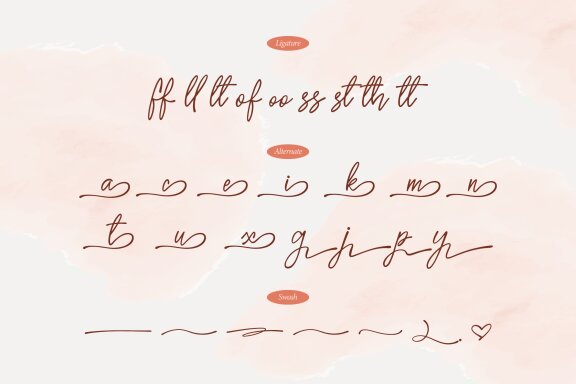 Ligature
ff ll lt of oo ss st th tt
Alternate
a c e i k m n
t u x g j p y
Swash